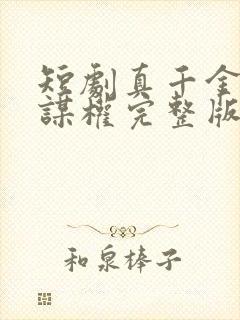 短劇真千金
謀權完整版
和泉棒子